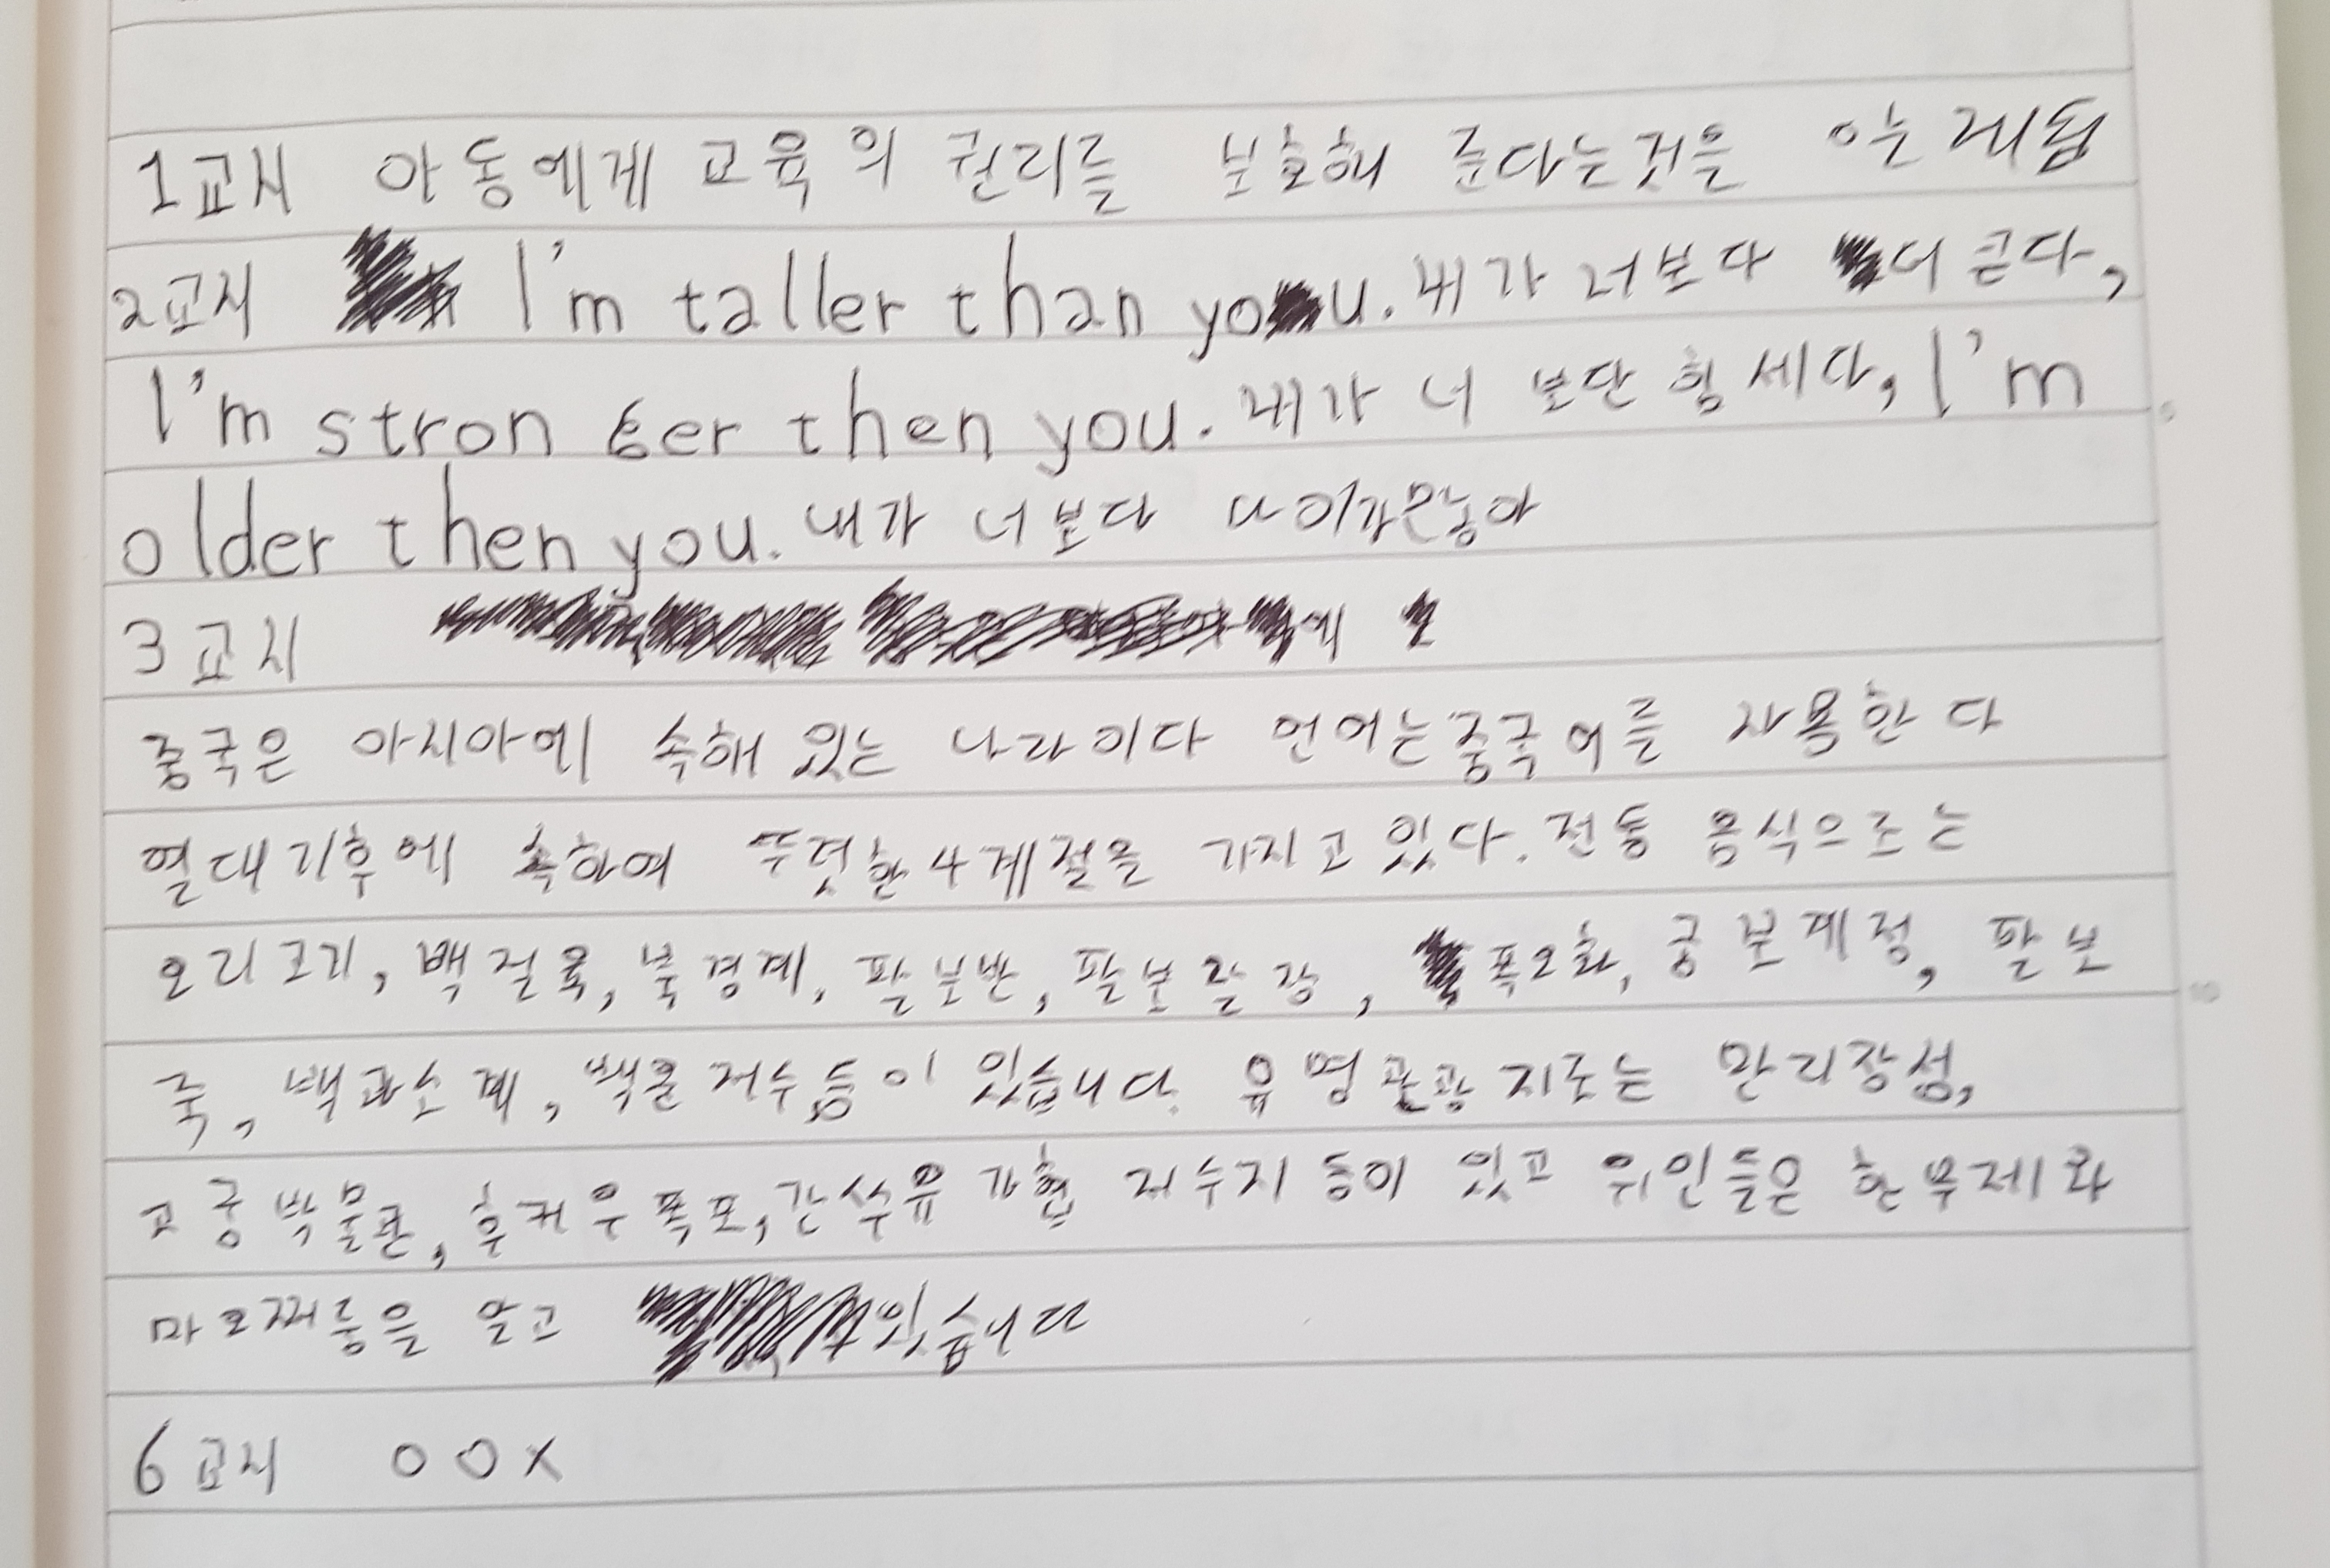 1교시 아동에게 교육의 권리를 보호해 준다는것을 알게됨
2교시 I'm taller than you. 내가 너보다 더 큰다,
I'm stronger then you. 내가 너 보단 힘 세다, I'm
older then you. 내가 너보다 나이가많아
3교시 에
중국은 아시아에 속해 있는 나라이다 언어는중국어를 사용한다
열대기후에 속하여 뚜렷한4계절을 가지고 있다. 전통 음식으로는
오리크기, 백절육, 북경계, 팔보반, 팔보랄장, 폭오화, 궁보계정, 팔보
죽, 백과소계, 백운저수등이 있습니다. 유명관광지로는 만리장성,
고궁박물관, 후커우폭포, 간쑤유가협 저수지 등이 있고 위인들은 한무제와
마오쩌둥을 알고 있습니다
6교시 OOX